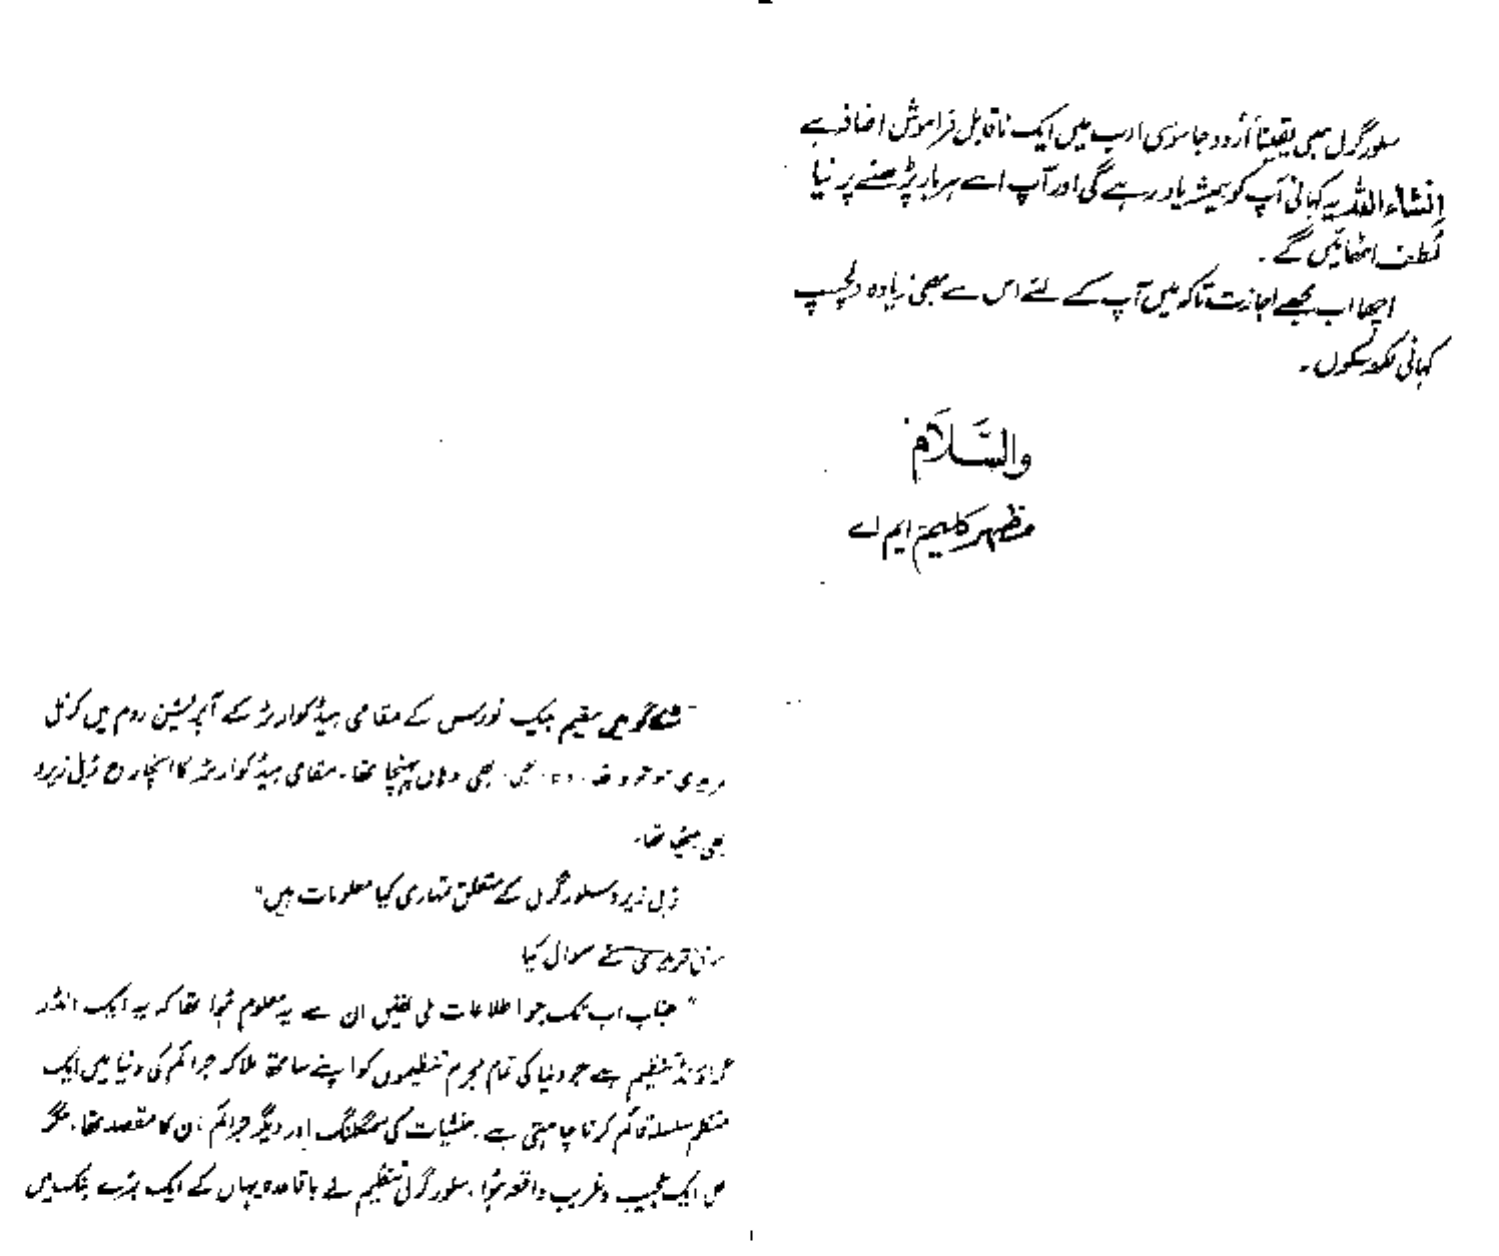 سلور گرل بھی یقیناً اُردو جاسوسی ادب میں ایک ناقابلِ فراموش اضافہ ہے
انشاء اللہ یہ کہانی آپ کو ہمیشہ یاد رہے گی اور آپ اسے ہر بار پڑھنے پر نیا
لُطف اٹھائیں گے ۔
اچھا اب مجھے اجازت تاکہ میں آپ کے لئے اس سے بھی زیادہ دلچسپ
کہانی لکھ سکوں ۔
والسَّلام
مظہر کلیم ایم اے
شکاگو میں مقیم بلیک فورس کے مقامی ہیڈ کوارٹر کے آپریشن روم میں کرنل
بھی وہاں پہنچا تھا۔ مقامی ہیڈ کوارٹر کا انچارج ڈبل زیرو
بھی تھا۔
ڈبل زیرو سلور گرل کے متعلق تمہاری کیا معلومات ہیں"
نے سوال کیا
" جناب اب تک جو اطلاعات ملی تھیں ان سے یہ معلوم ہُوا تھا کہ یہ ایک انڈر
گراؤنڈ تنظیم ہے جو دنیا کی تمام مجرم تنظیموں کو اپنے ساتھ ملا کر جرائم کی دنیا میں ایک
سلسلہ قائم کرنا چاہتی ہے ۔ منشیات کی سمگلنگ اور دیگر جرائم ان کا مقصد تھا ۔ مگر
ایک عجیب و غریب واقعہ ہُوا ۔ سلور گرل تنظیم نے باقاعدہ یہاں کے ایک بڑے بنک میں